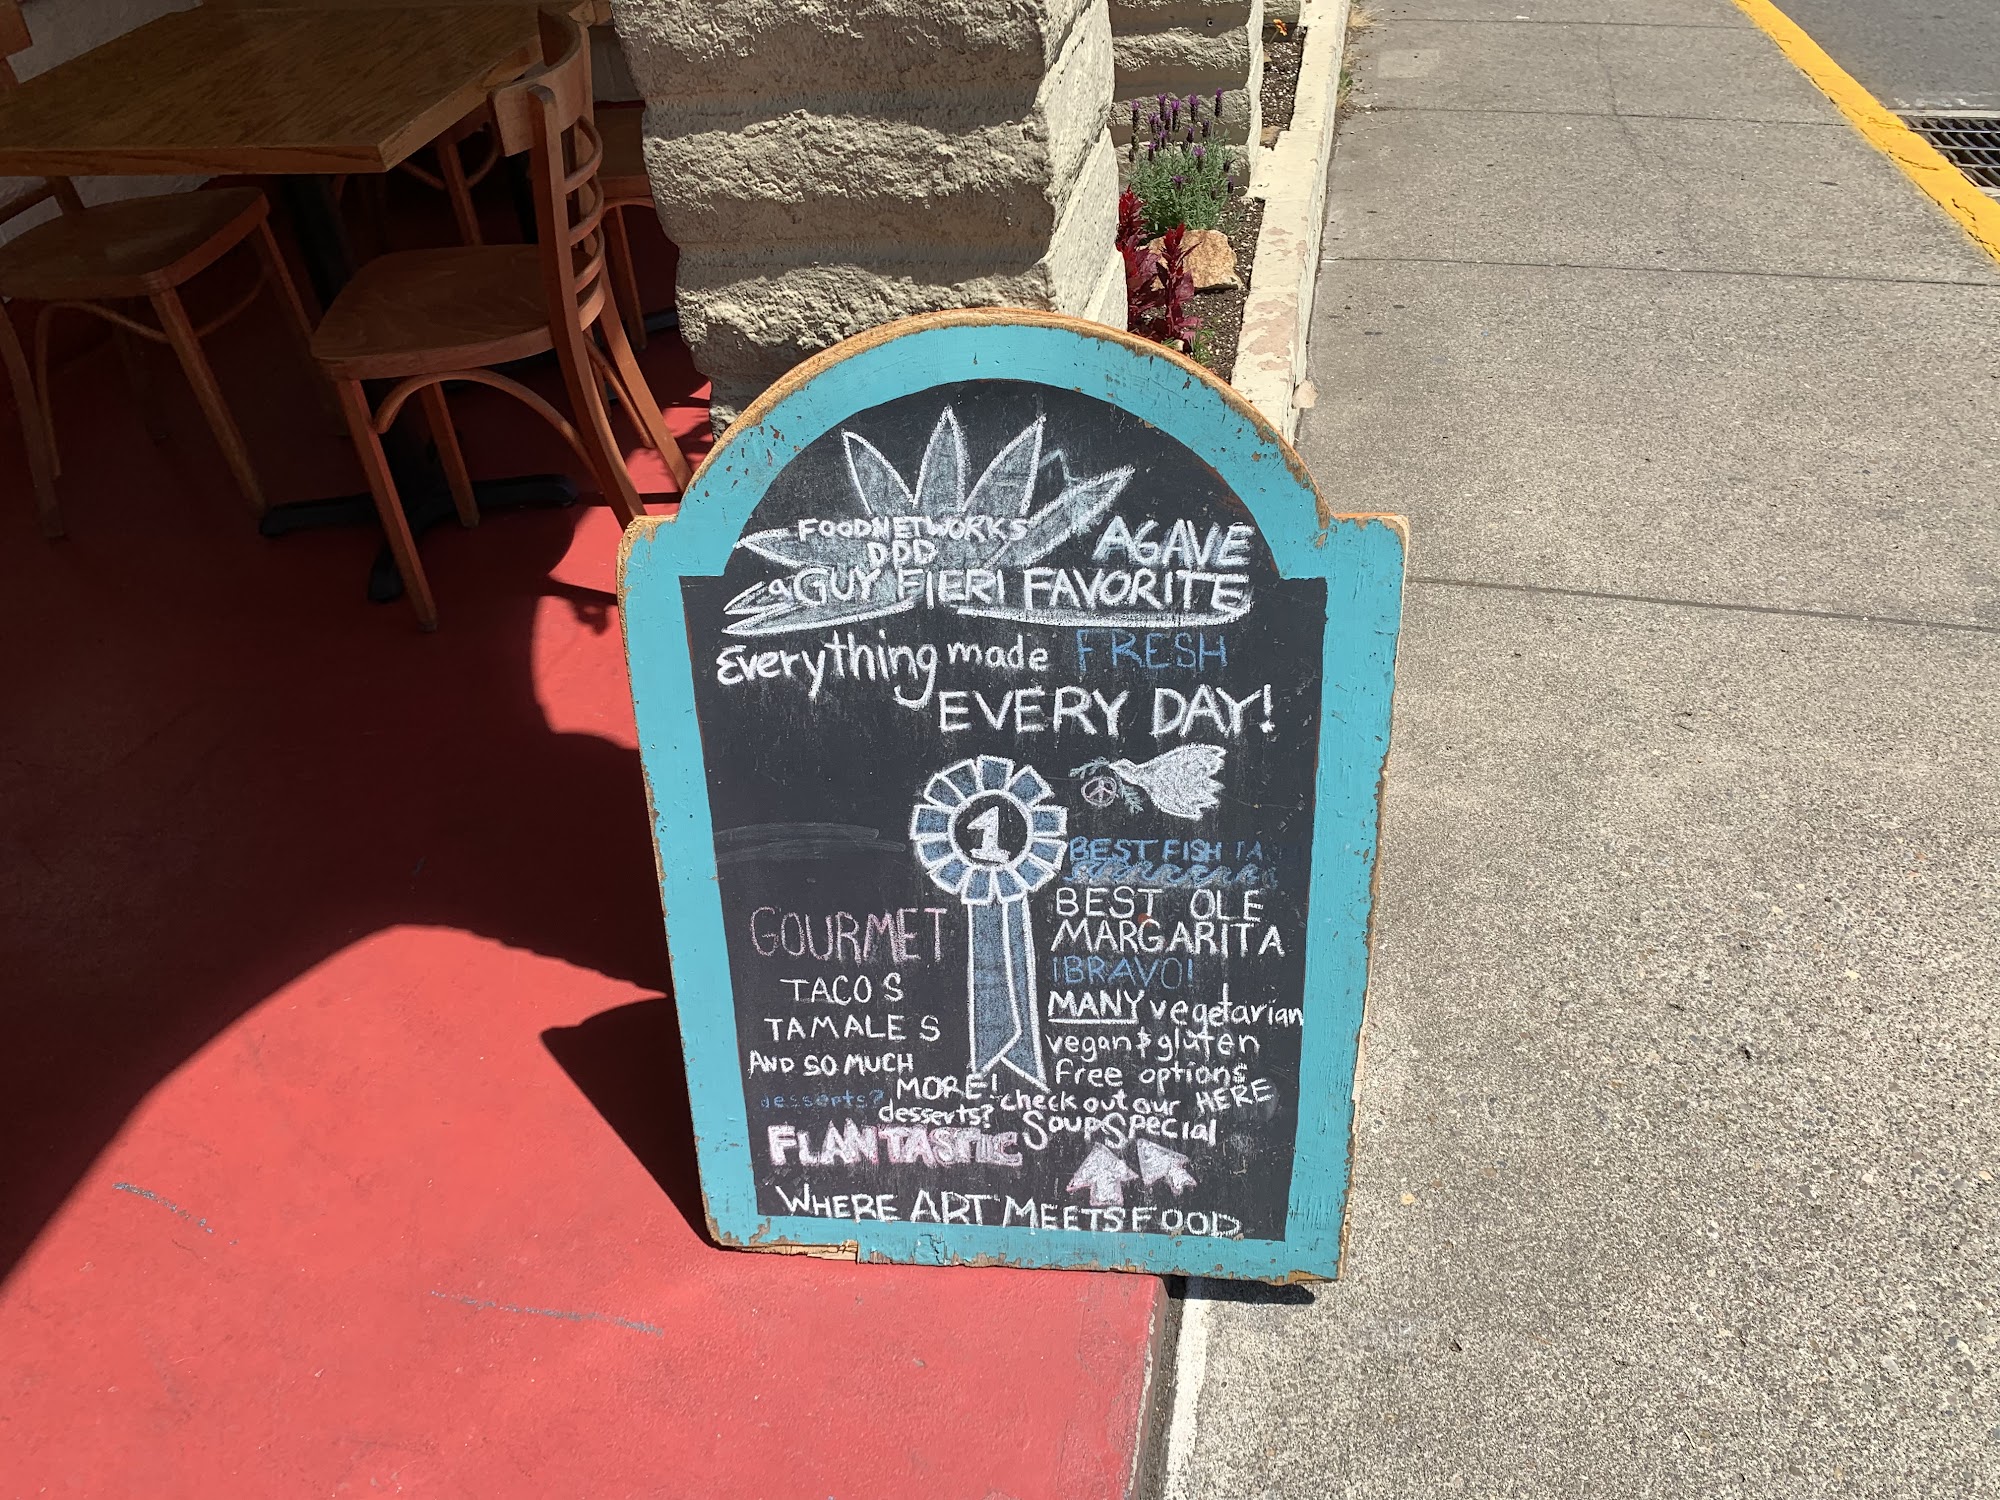 FOODNETWORKS
DDD
AGAVE
a GUY FIERI FAVORITE
Everything made FRESH
EVERY DAY!
1
BEST FISH TA
BEST OLE
MARGARITA
¡BRAVO!
MANY vegetarian
vegan & gluten
free options
HERE
GOURMET
TACOS
TAMALES
AND SO MUCH
MORE!
desserts?
desserts?
FLANTASTIC
check out our
Soup Special
WHERE ART MEETS FOOD